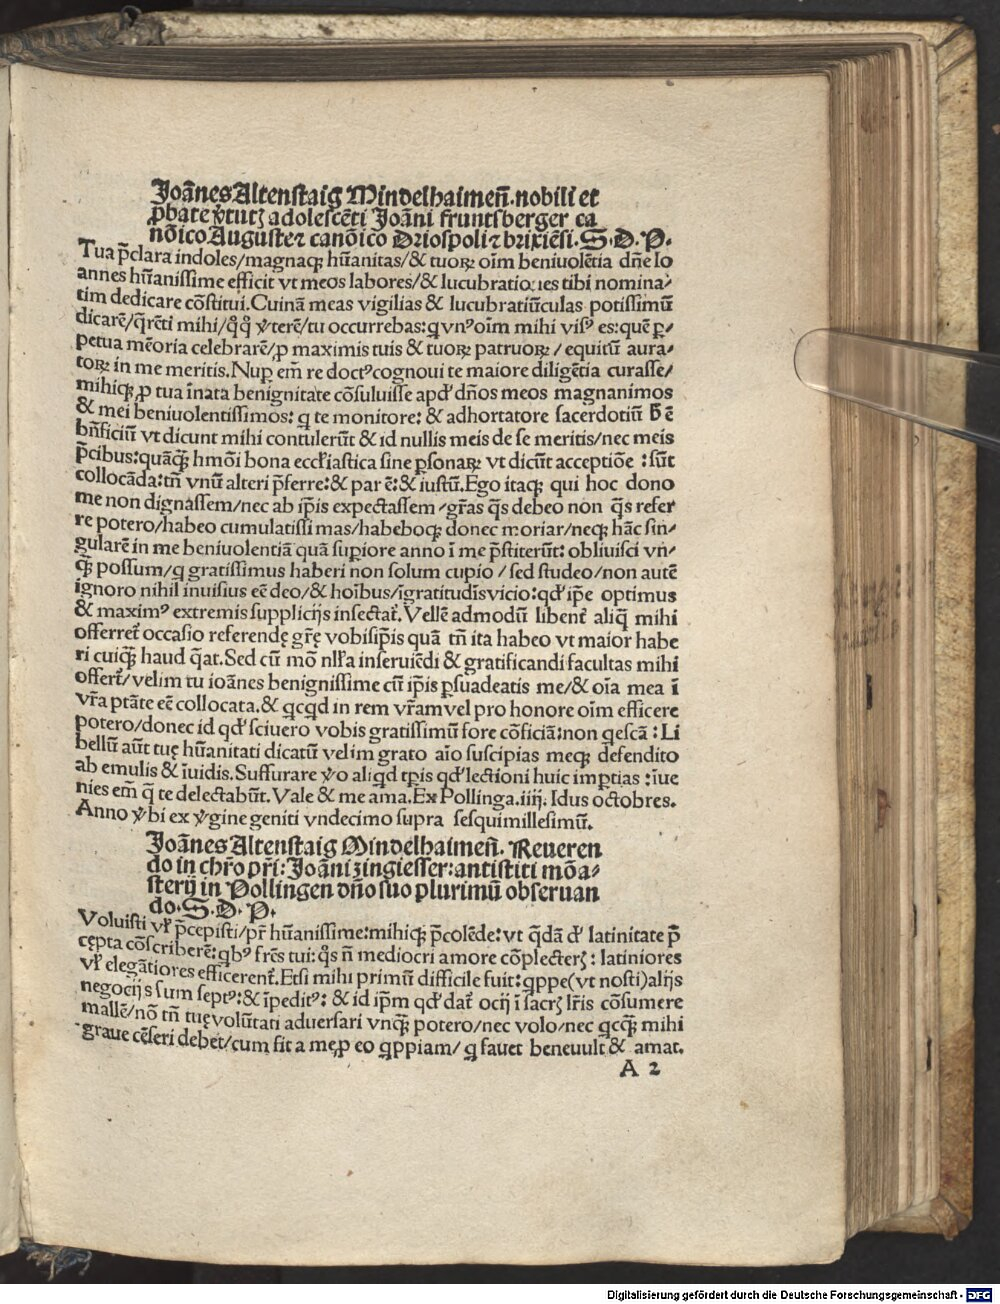 Joānes Altenstaig Mindelhaimeñ. nobili et
ꝓbate v̄tutꝫ adolescēti Joāni fruntsberger ca
nōico Augusteꝫ canōico Oriospoli ⁊ brixiēsi. S. D. P.
Tua p̄clara indoles/magnaqꝫ hūanitas/& tuoꝝ oīm beniuolētia dn̄e Io
annes hūanissime efficit vt meos labores/& lucubrationes tibi nomina⸗
tim dedicare cōstitui. Cuinā meas vigilias & lucubratiūculas potissimū
dicarē/q̄rēti mihi/q̊q̊ v̄terē/tu occurrebas: ꝙ vnꝰ oīm mihi visꝰ es: quē ꝑ⸗
petua mēoria celebrarē/ꝓ maximis tuis & tuoꝝ patruoꝝ/equitū aura⸗
toꝝ in me meritis. Nuꝑ em̄ re doctꝰ cognoui te maiore diligētia curasse/
mihiqꝫ ꝓ tua īnata benignitate cōsuluisse apd' dn̄os meos magnanimos
& mei beniuolentissimos: ꝙ te monitore: & adhortatore sacerdotiū h̄ ē
bn̄ficiū vt dicunt mihi contulerūt & id nullis meis de se meritis/nec meis
p̄cibus: quāqꝫ̄ hmōi bona eccl'iastica sine ꝑsonaꝝ vt dicūt acceptiōe : sūt
collocāda: tn̄ vnū alteri p̄ferre: & par ē: & iustū. Ego itaqꝫ qui hoc dono
me non dignassem/nec ab ip̄is expectassem/gr̄as q̄s debeo non q̄s refer
re potero/habeo cumulatissimas/habeboqꝫ donec moriar/neqꝫ hāc sin⸗
gularē in me beniuolentiā quā suꝑiore anno ī me p̄stiterūt: obliuisci vn⸗
qꝫ̄ possum/ꝙ gratissimus haberi non solum cupio/sed studeo/non autē
ignoro nihil inuisius eē deo/& hoībus/īgratitudīs vicio: qd' ip̄e optimus
& maximꝰ extremis supplicijs insectat̄. Vellē admodū libent̄ aliq̄ mihi
offerret occasio referendę gr̄ę vobisip̄is quā tn̄ ita habeo vt maior habe
ri cuiqꝫ̄ haud q̄at. Sed cū mō nll'a inseruiēdi & gratificandi facultas mihi
offert̄/velim tu ioānes benignissime cū ip̄is ꝑsuadeatis me/& oīa mea ī
vr̄a ptāte eē collocata. & ꝙcꝙd in rem vr̄am vel pro honore oīm efficere
potero/donec id qd' sciuero vobis gratissimū fore cōficiā: non ꝙescā : Li
bellū aūt tuę hūanitati dicatū velim grato aīo suscipias meqꝫ defendito
ab emulis & īuidis. Suffurare v̄o aliꝙd tꝑis qd' lectioni huic imꝑtias : īue
nies em̄ q̄ te delectabūt. Vale & me ama. Ex Pollinga. iiij. Idus octobres.
Anno v̄bi ex v̄gine geniti vndecimo supra sesquimillesimū.
Joānes Altenstaig Mindelhaimeñ. Reueren
do in chr̄o pr̄i: Joāni zingiesser: antistiti mōa⸗
sterij in Pollingen dn̄o suo plurimū obseruan
do. S. D. P.
Voluisti vl' p̄cepisti/pr̄ hūanissime: mihiqꝫ p̄colēde: vt q̄dā d' latinitate p̄
cępta cōscriberē: ꝙbꝰ fr̄es tui: q̊s n̄ mediocri amore cōplecterꝫ : latiniores
vl' elegātiores efficerent̄. Etsi mihi primū difficile fuit: ꝙppe (vt nosti) alijs
negocijs sum septꝰ: & īpeditꝰ: & id ip̄m qd' dat̄ ocij ī sacrꝫ lr̄is cōsumere
mallē/nō tn̄ tuę volūtati aduersari vnqꝫ̄ potero/nec volo/nec ꝙcqꝫ̄ mihi
graue cēseri debet/cum fit a me ꝓ eo ꝙppiam/ꝙ fauet beneuult & amat.
A 2
Digitalisierung gefördert durch die Deutsche Forschungsgemeinschaft - DFG